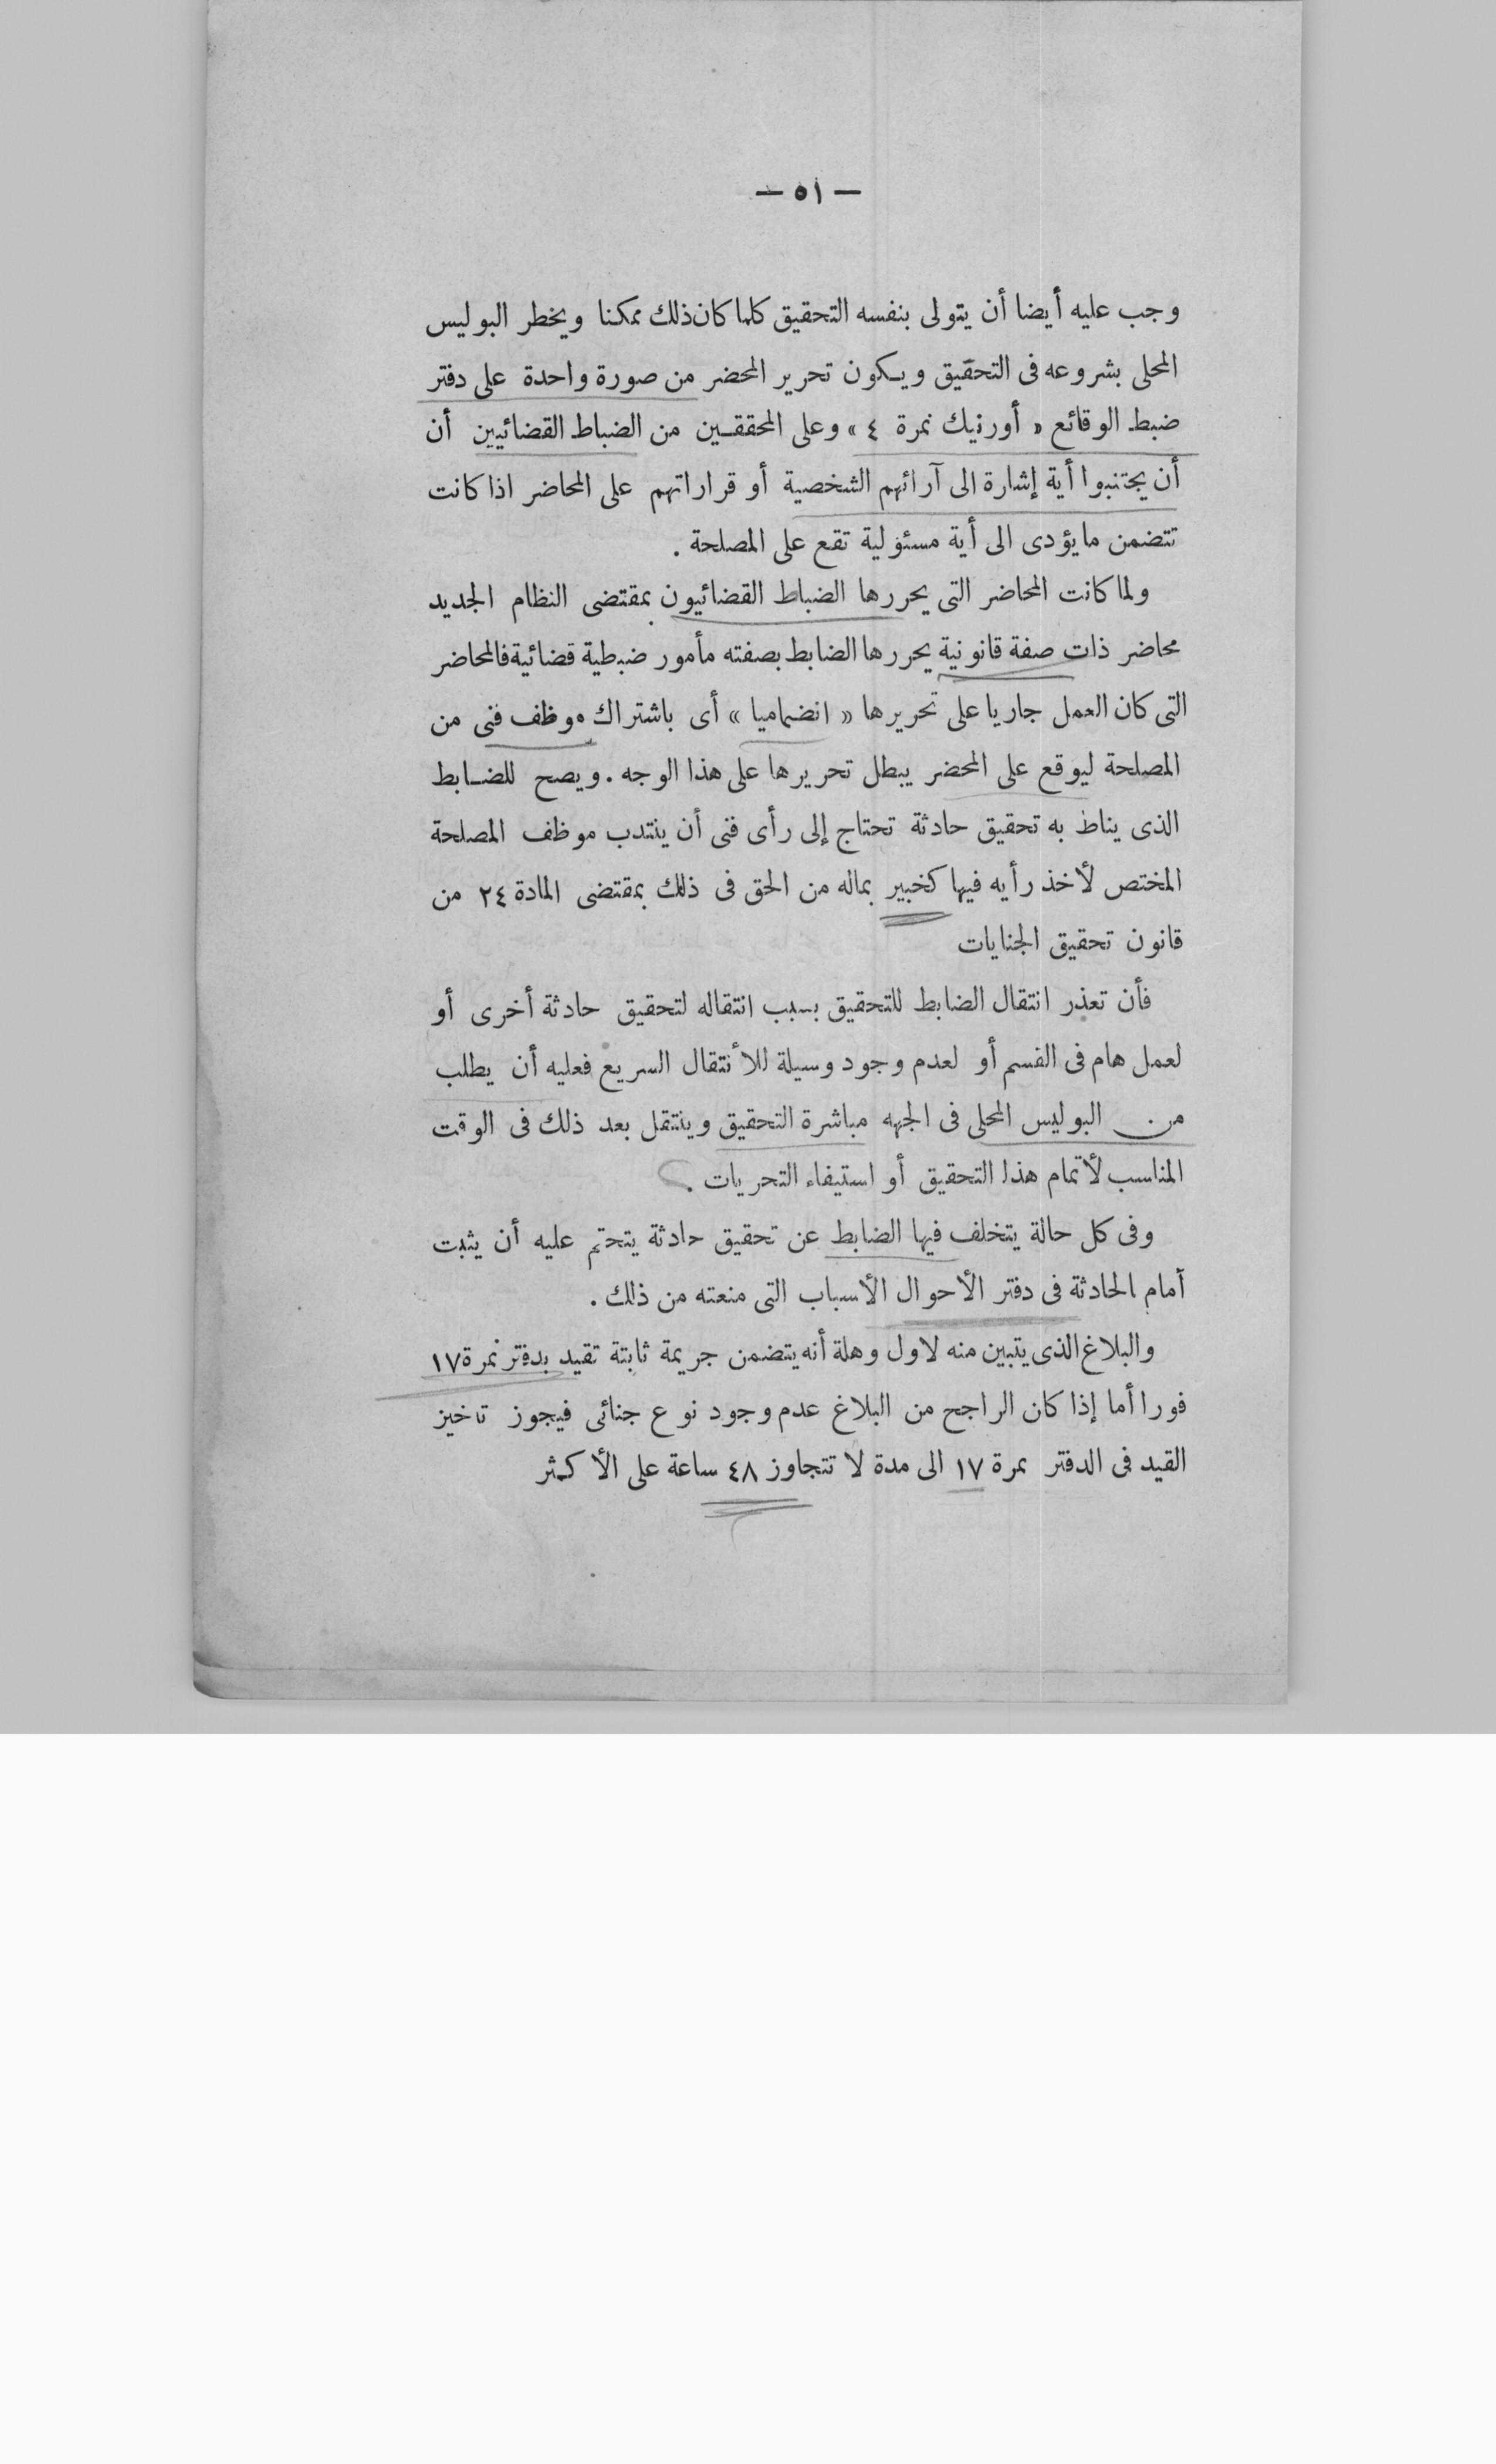 — ٥١ —
وجب عليه أيضا أن يتولى بنفسه التحقيق كلما كان ذلك ممكنا ويخطر البوليس
المحلى بشروعه فى التحقيق ويكون تحرير المحضر من صورة واحدة على دفتر
ضبط الوقائع « أورنيك نمرة ٤ » وعلى المحققين من الضباط القضائيين أن
أن يجتنبوا أية إشارة الى آرائهم الشخصية أو قراراتهم على المحاضر اذا كانت
تتضمن ما يؤدى الى أية مسئولية تقع على المصلحة .
ولما كانت المحاضر التى يحررها الضباط القضائيون بمقتضى النظام الجديد
محاضر ذات صفة قانونية يحررها الضابط بصفته مأمور ضبطية قضائية فالمحاضر
التى كان العمل جاريا على تحريرها « انضماميا » أى باشتراك موظف فنى من
المصلحة ليوقع على المحضر يبطل تحريرها على هذا الوجه . ويصح للضابط
الذى يناط به تحقيق حادثة تحتاج إلى رأى فنى أن ينتدب موظف المصلحة
المختص لأخذ رأيه فيها كخبير بماله من الحق فى ذلك بمقتضى المادة ٢٤ من
قانون تحقيق الجنايات
فأن تعذر انتقال الضابط للتحقيق بسبب انتقاله لتحقيق حادثة أخرى أو
لعمل هام فى القسم أو لعدم وجود وسيلة للأنتقال السريع فعليه أن يطلب
من البوليس المحلى فى الجهه مباشرة التحقيق وينتقل بعد ذلك فى الوقت
المناسب لأتمام هذا التحقيق أو استيفاء التحريات .
وفى كل حالة يتخلف فيها الضابط عن تحقيق حادثة يتحتم عليه أن يثبت
أمام الحادثة فى دفتر الأحوال الأسباب التى منعته من ذلك .
والبلاغ الذى يتبين منه لاول وهلة أنه يتضمن جريمة ثابتة تقيد بدفتر نمرة ١٧
فورا أما إذا كان الراجح من البلاغ عدم وجود نوع جنائى فيجوز تاخيز
القيد فى الدفتر نمرة ١٧ الى مدة لا تتجاوز ٤٨ ساعة على الأكثر